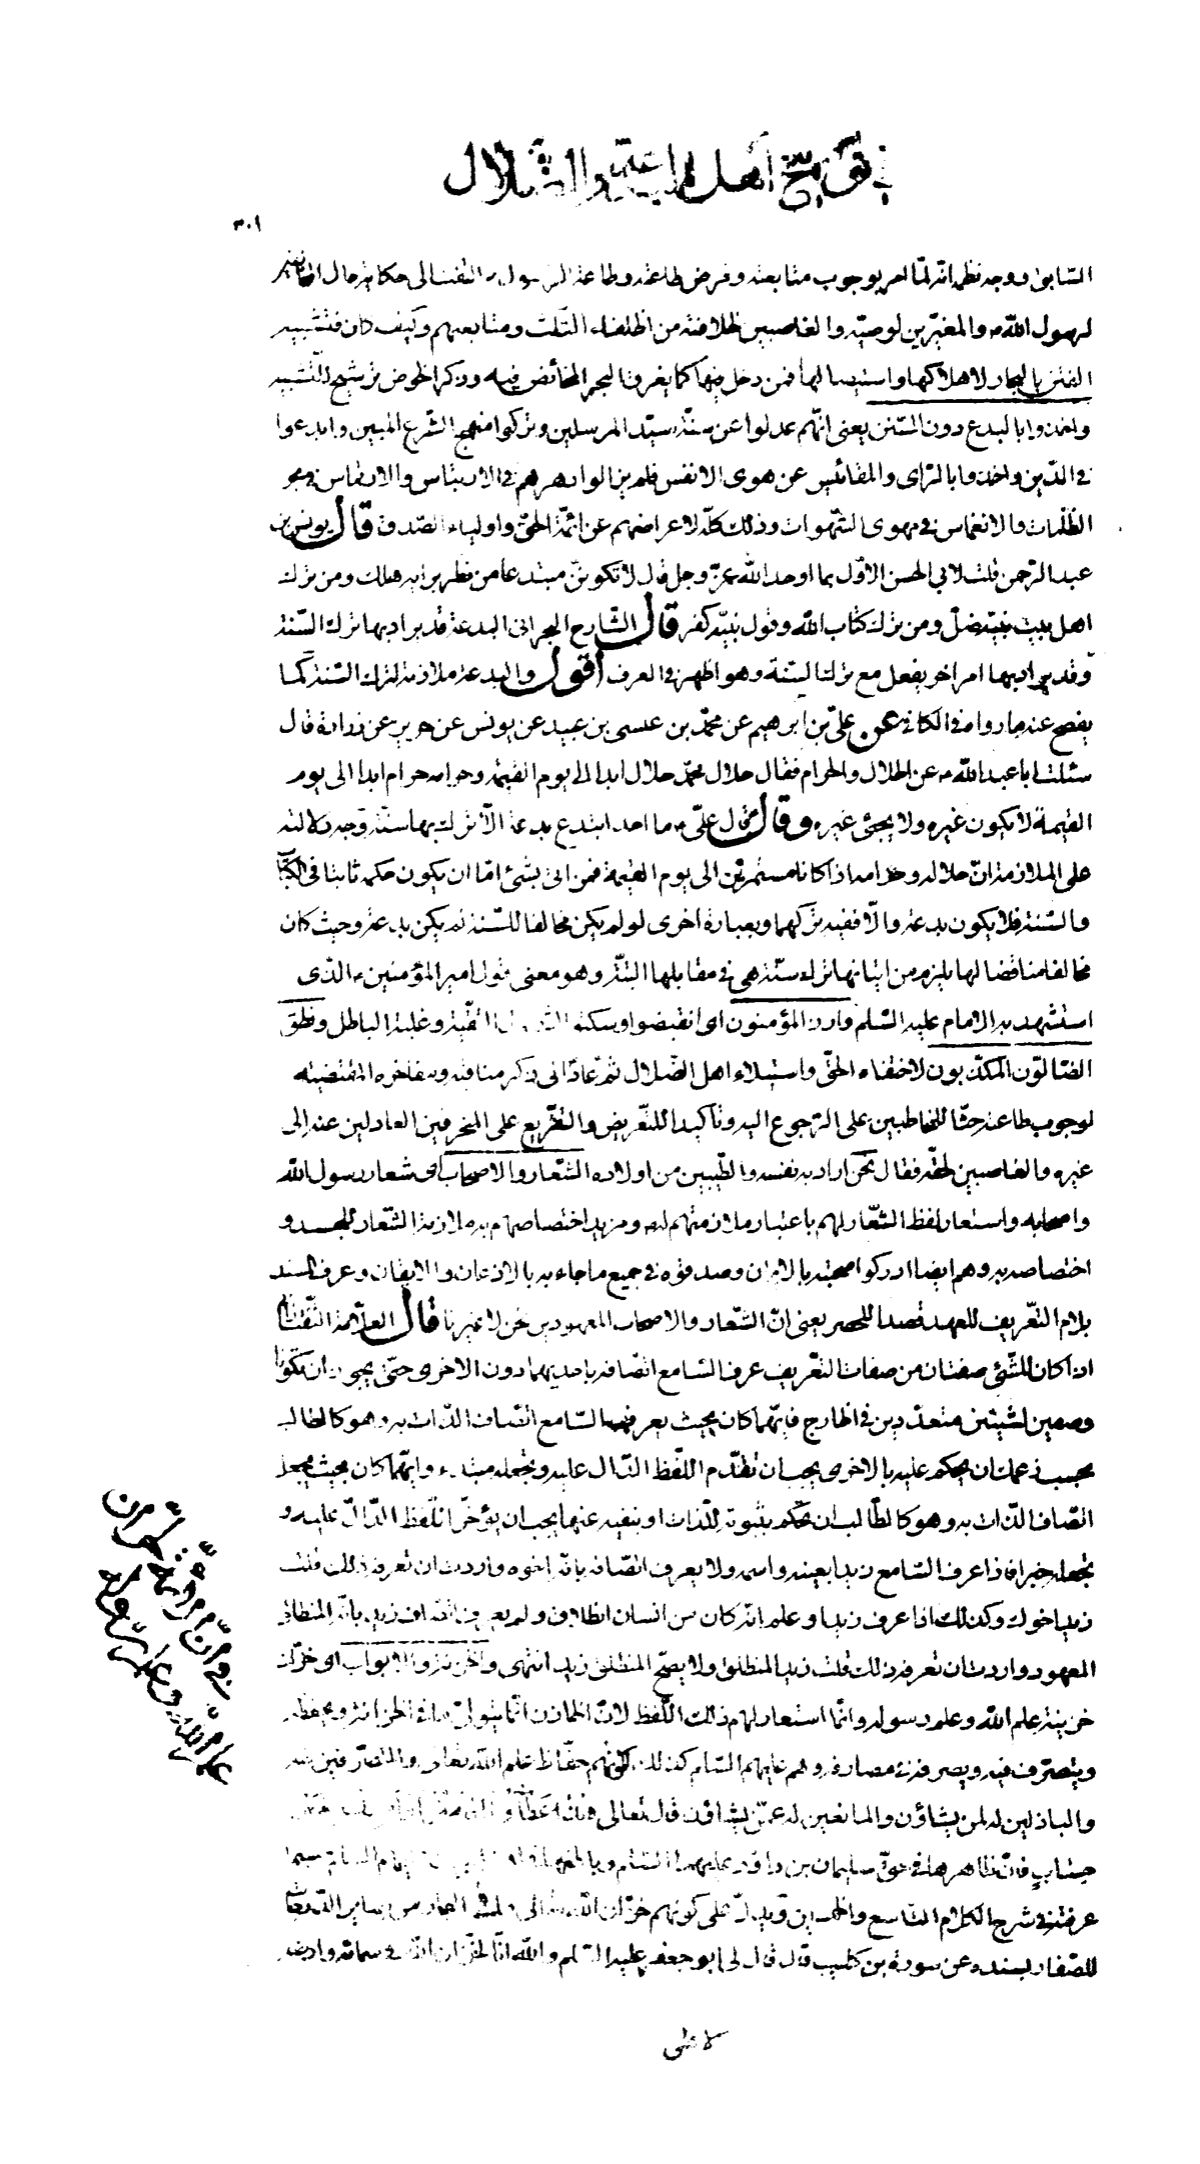 في توبيخ أهل البدعة والضلال
٣٠١
السّابق ووجه نظمه انّه لمّا امر بوجوب متابعته وفرض طاعته وطاعة الرسول التفت الى حكاية حال
لرسول اللّه ص والمغيّرين لوصيّه والغاصبين لخلافته من الخلفاء الثّلث ومتابعيهم وكيف كان فتشبيه
الفتن بالبحار لاهلاكها واستيصالها فمن دخل فيها كما يغرق البحر الخائض فيه وذكر الخوض ترشيح للتّشبيه
واخذوا بالبدع دون السّنن يعنى انّهم عدلوا عن سنّة سيّد المرسلين وتركوا منهج الشّرع المبين وابدعوا
في الدّين واخذوا بالرّاى والمقائيس عن هوى الانفس فلم يزالوا دهرهم في الارتباس والارتماس في بحر
الظّلمات والانغماس في مهوى الشّهوات وذلك كلّه لاعراضهم عن ائمّة الحقّ واولياء الصّدق قال يونس بن
عبد الرّحمن قلت لابي الحسن الاوّل بما اوحد اللّه عزّ وجل قال لا تكوننّ مبتدعا من نظر برايه هلك ومن ترك
اهل بيت نبيّه ضلّ ومن ترك كتاب اللّه وقول نبيّه كفر قال الشّارح البحراني البدعة قد يراد بها ترك السّنة
وقد يراد بها امر اخر يفعل مع ترك السّنة وهو اظهر في العرف أقول والبدعة ملازمة لترك السّنة كما
يفصح عنه ما رواه في الكافي عن علىّ بن ابرهيم عن محمّد بن عيسى بن عبيد عن يونس عن حريز عن زرارة قال
سئلت ابا عبد اللّه ع عن الحلال والحرام فقال حلال محمّد حلال ابدا الى يوم القيمة وحرامه حرام ابدا الى يوم
القيمة لا يكون غيره ولا يجئ غيره وقال قال علىّ ع ما احد ابتدع بدعة الّا ترك بها سنّة وجه دلالته
على الملازمة انّ حلاله وحرامه اذا كانا مستمرّين الى يوم القيمة فمن اتى بشئ امّا ان يكون حكمه ثابتا في الكتاب
والسّنة فلا يكون بدعة والّا ففيه تركهما وبعبارة اخرى لو لم يكن مخالفا للسّنة لم يكن بدعة وحيث كان
مخالفا مناقضا لها يلزم من اتيانها ترك سنّة هي في مقابلها البتّة وهو معنى قول امير المؤمنين ع الذى
استشهد به الامام عليه السّلم وارز المؤمنون اى انقبضوا وسكتوا التقيّة وغلبة الباطل ونطق
الضّالّون المكذّبون لاختفاء الحقّ واستيلاء اهل الضّلال ثمّ عاد الى ذكر مناقبه ومفاخره المقتضية
لوجوب طاعته حثّا للمخاطبين على الرّجوع اليه وتأكيدا للتّعريض والتقريع على المنحرفين العادلين عنه الى
غيره والغاصبين لحقّه فقال نحن اراد به نفسه والطّيبين من اولاده الشّعار والاصحاب اى شعار رسول اللّه
واصحابه واستعار لفظ الشّعار لهم باعتبار ملازمتهم له ومزيد اختصاصهم به ملازمة الشّعار للجسد و
اختصاصه به وهم ايضا ادركوا صحبته بالايمان وصدقوه في جميع ما جاء به بالاذعان والايقان وعرف المسند
بلام التّعريف للعهد قصدا للحصر يعنى انّ الشّعار والاصحاب المعهودين نحن لا غيرنا قال العلّامة التّفتازاني
اذا كان للشّئ صفتان من صفات التّعريف عرف السّامع اتّصافه باحديهما دون الاخرى حتّى يجوز ان تكونا
وصفين لشيئين متعدّدين في الخارج فايّهما كان بحيث يعرف السّامع اتّصاف الذّات به وهو كالطالب
بحسب زعمك ان يحكم عليه بالاخرى يجب ان تقدّم اللّفظ الدّال عليه وتجعله مبتدء وايّهما كان بحيث يجهل
اتّصاف الذّات به وهو كالطّالب ان تحكم بثبوته للذّات او بنفيه عنها يجب ان يؤخّر اللّفظ الدّالّ عليه و
تجعله خبرا فاذا عرف السّامع زيدا بعينه واسمه ولا يعرف اتّصافه بانّه اخوه واردت ان تعرفه ذلك قلت
زيد اخوك وكذلك اذا عرف زيدا وعلم انّه كان من انسان انطلاق ولم يعرف اتّصاف زيد بانّه المنطلق
المعهود واردت ان تعرفه ذلك قلت زيد المنطلق ولا يصحّ المنطلق زيد انتهى والخزنة والابواب اى خزّان
خزينة علم اللّه وعلم رسوله وانّما استعار لهم ذلك اللّفظ لانّ الخازن انّما يتولّى ما في الخزانة ويحفظه
ويتصرّف فيه ويصرفه في مصارفه وهم عليهم السّلم كذلك لكونهم حفّاظ علم اللّه تعالى والمتصرّفين فيه
والباذلين له لمن يشاؤن والمانعين له عمّن يشاؤن قال تعالى هذا عَطٰاؤُنٰا
حِسٰابٍ فانّ ظاهرها في حقّ سليمان بن داود عليهما السّلم
عرفته في شرح الكلام التّاسع والخمسين ويدلّ على كونهم خزّان اللّه تعالى في البحار من بصائر الدّرجات
للصّفار بسنده عن سورة بن كليب قال قال لى ابو جعفر عليه السّلم واللّه انّا لخزّان اللّه في سمائه وارضه
لا على